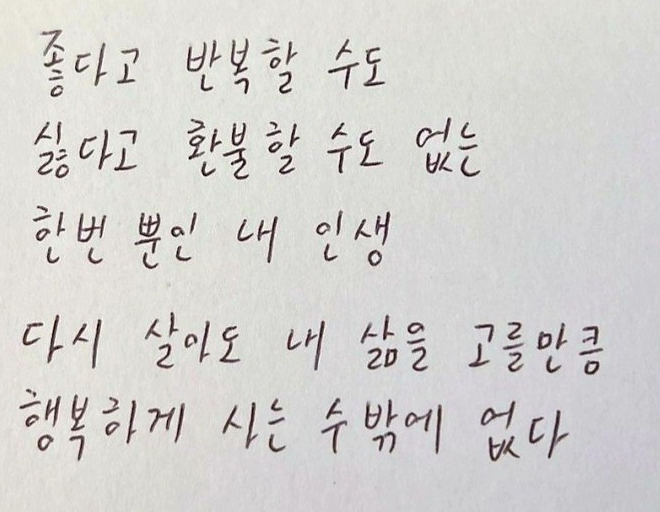 좋다고 반복할 수도
싫다고 환불할 수도 없는
한번 뿐인 내 인생
다시 살아도 내 삶을 고를만큼
행복하게 사는 수밖에 없다